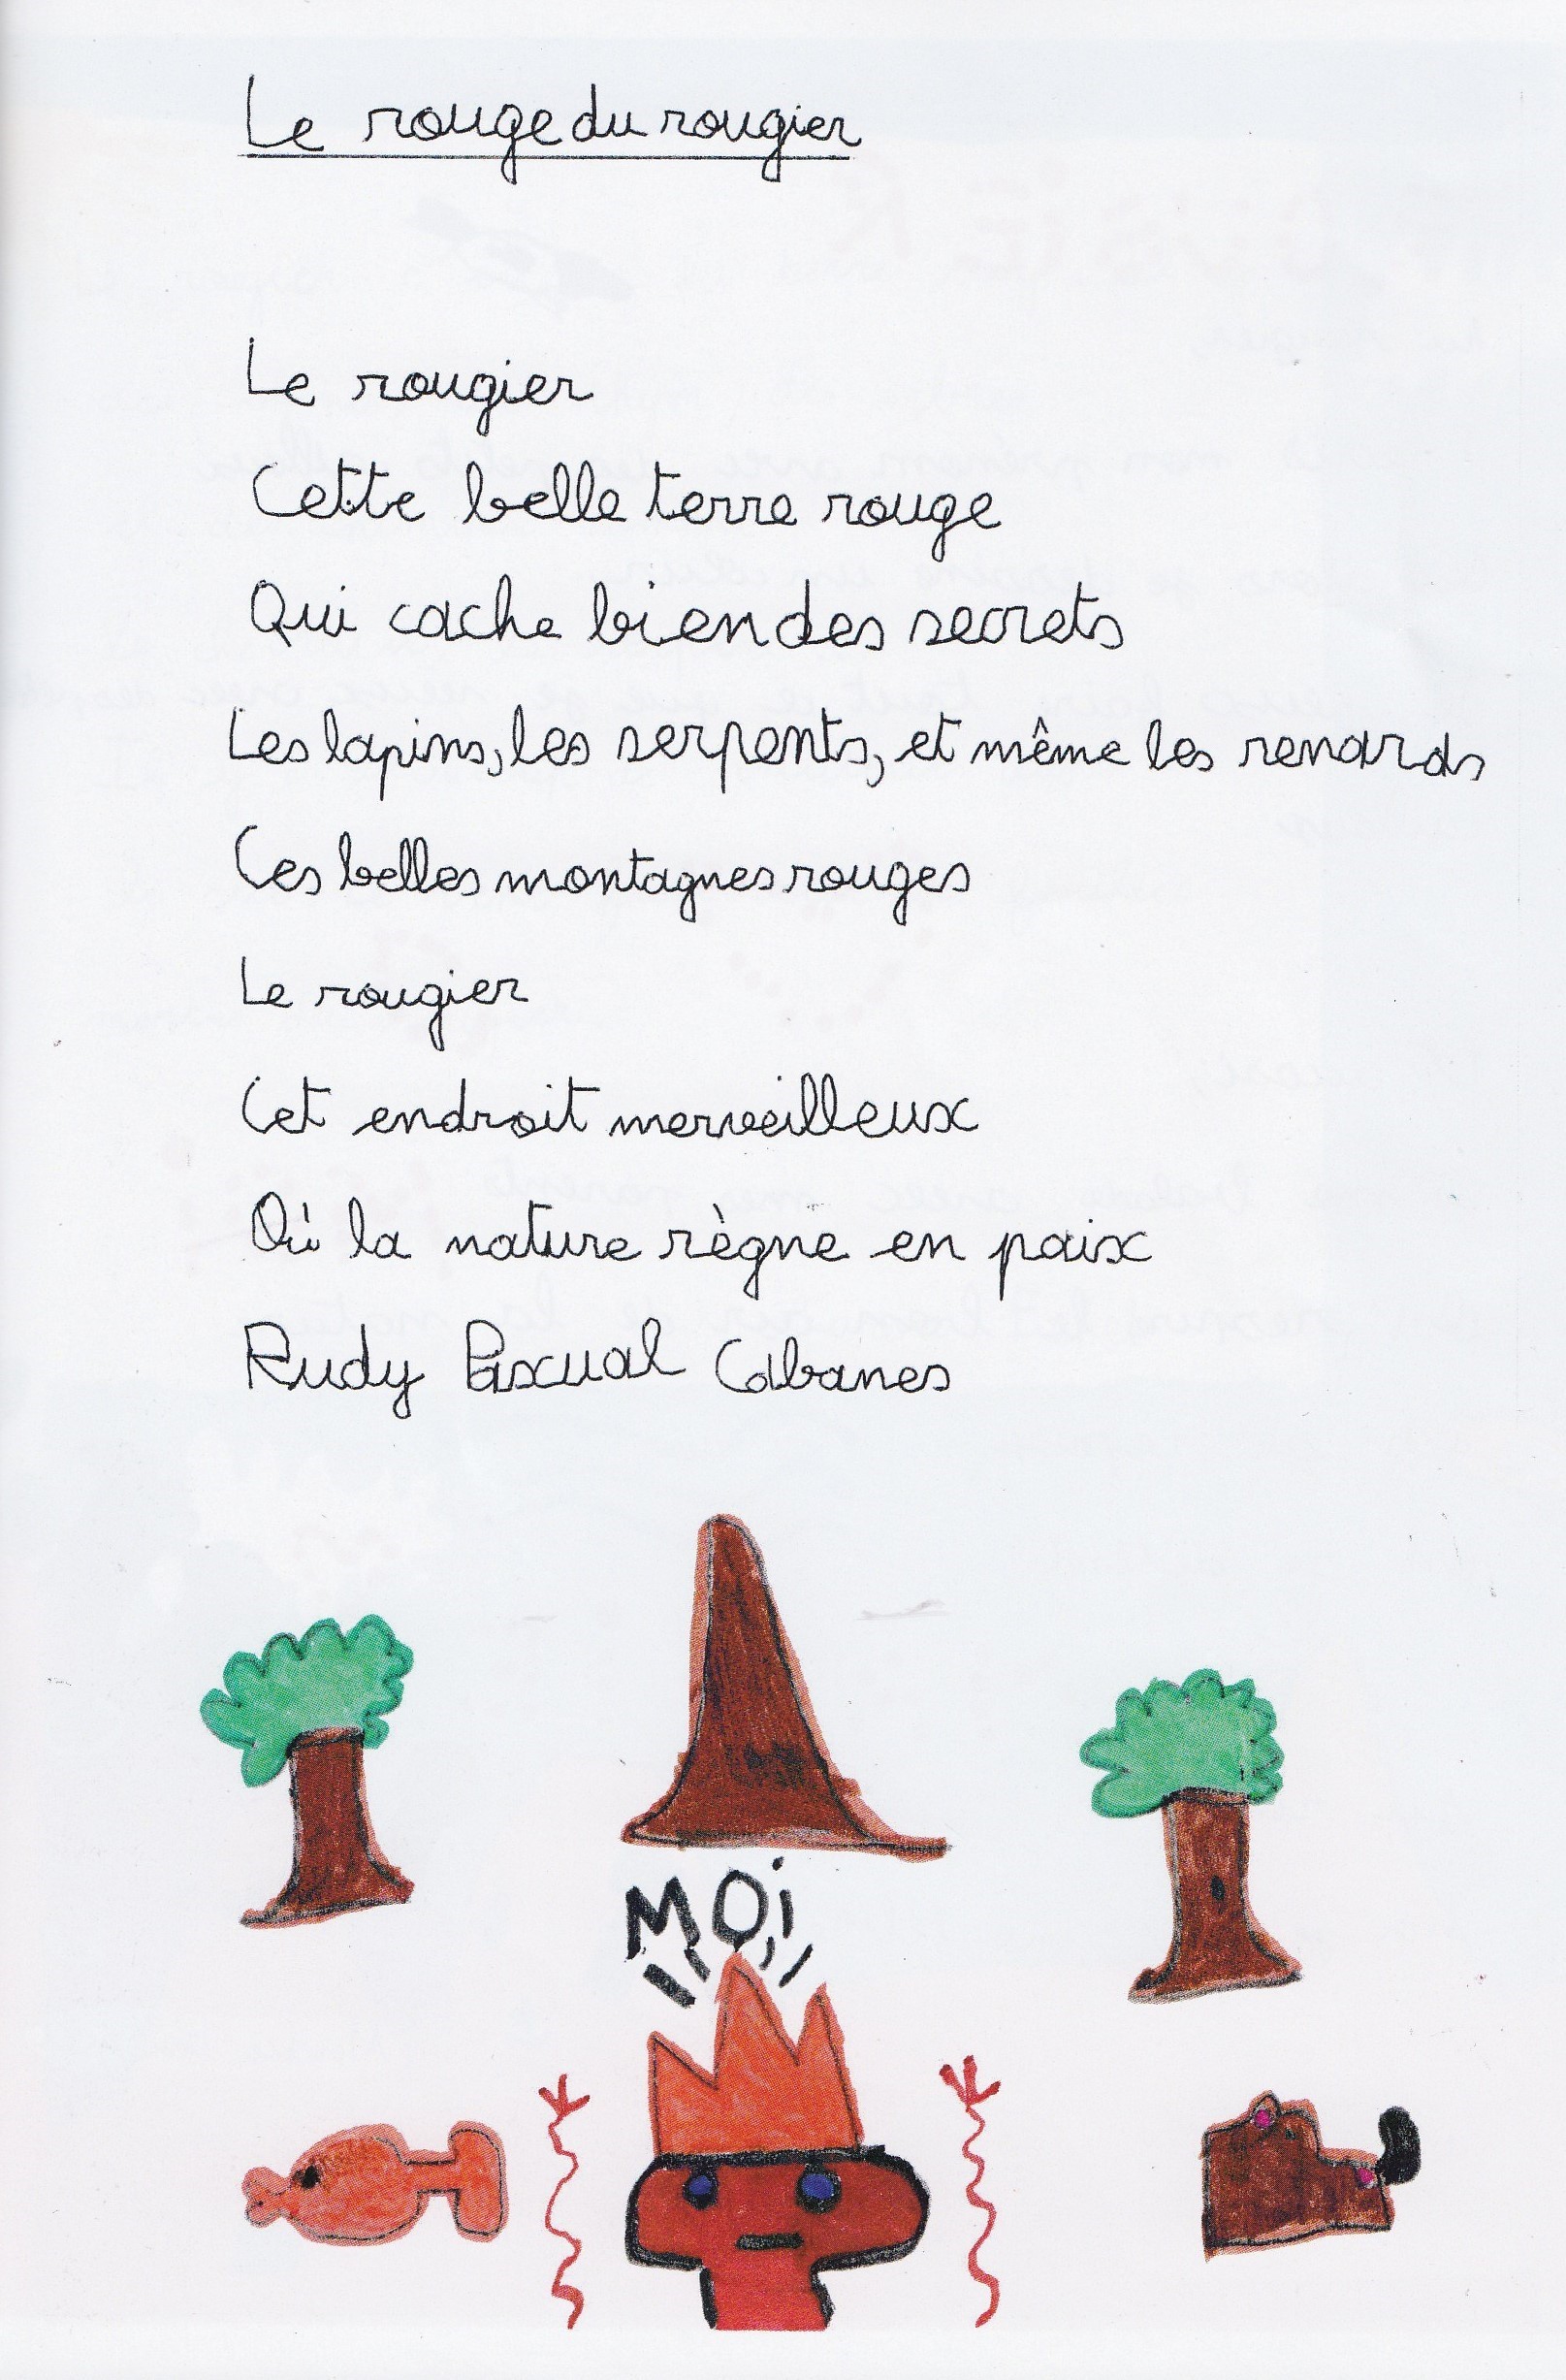 Le rouge du rougier
Le rougier
Cette belle terre rouge
Qui cache bien des secrets
Les lapins, les serpents, et même les renards
Ces belles montagnes rouges
Le rougier
Cet endroit merveilleux
Où la nature règne en paix
Rudy Pascual Cabanes
MOi